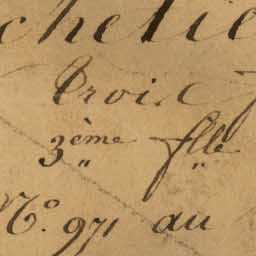 chelie
Croix
3ème flle
" "
N°. 971 au